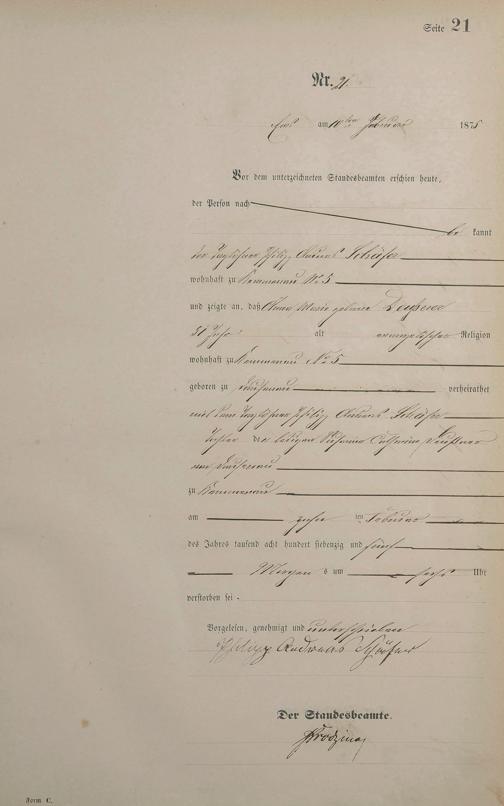 Seite 21
Nr. 21.
Ems am 10ten Februar 1875
Vor dem unterzeichneten Standesbeamten erschien heute,
der Person nach
be kannt
der Taglöhner Philipp Andreas Schäfer
wohnhaft zu Kemmenau No 5
und zeigte an, daß Anna Maria geborene
31 Jahr alt evangelischer Religion
wohnhaft zu Kemmenau No 5
geboren zu Dausenau verheirathet
mit dem Taglöhner Philipp Andreas Schäfer
Tochter der ledigen Catharina
von Dausenau
zu Kemmenau
am zehn ten Februar
des Jahres tausend acht hundert siebenzig und fünf
Morgen s um sechs Uhr
verstorben sei.
Vorgelesen, genehmigt und unterschrieben
Philipp Andreas Schäfer
Der Standesbeamte.
Form C.